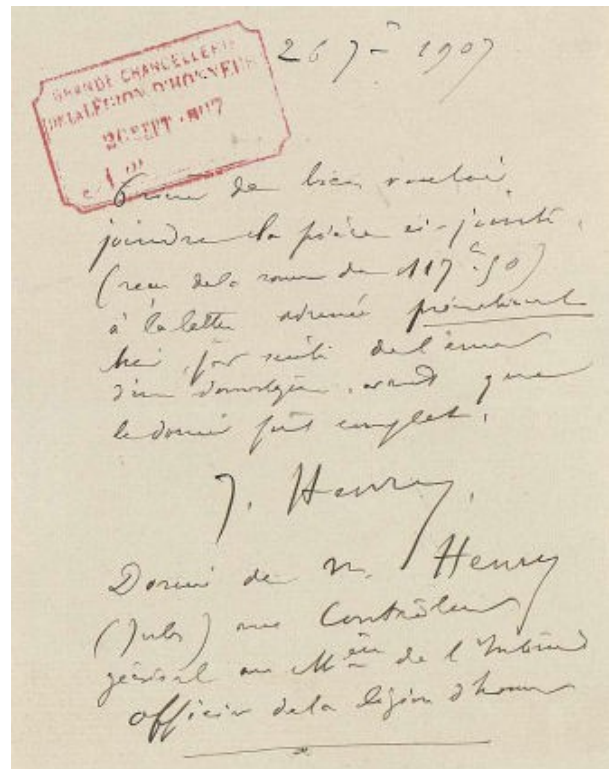 26 7re 1907
GRANDE CHANCELLERIE
DE LA LÉGION D'HONNEUR
26 SEPT. 1907
Prière de bien vouloir
joindre la pièce ci-jointe,
(reçu de la somme de 117f.50)
à la lettre adressée prématurément
hier, par suite de l'erreur
d'un domestique, avant que
le dossier fût complet.
J. Henry.
Dossier de M. Henry
(Jules) Contrôleur
général au Mère de l'Intérieur
officier de la légion d'honneur